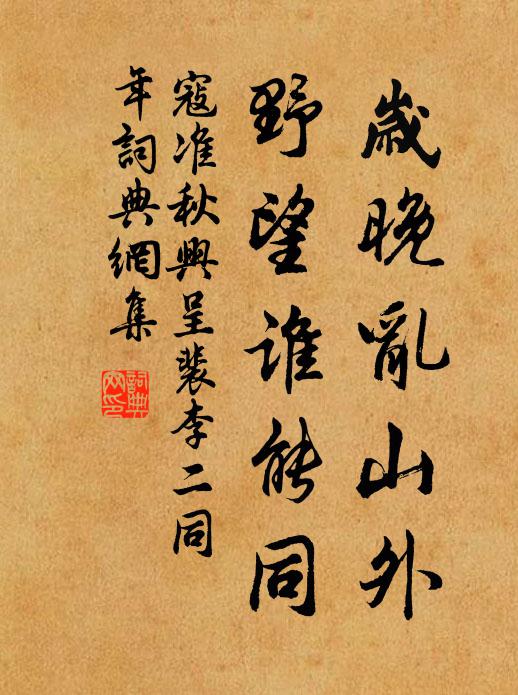 歲晚亂山外
野望誰能同
寇准秋興呈裴李二同
年詞典網集
詞典
网印